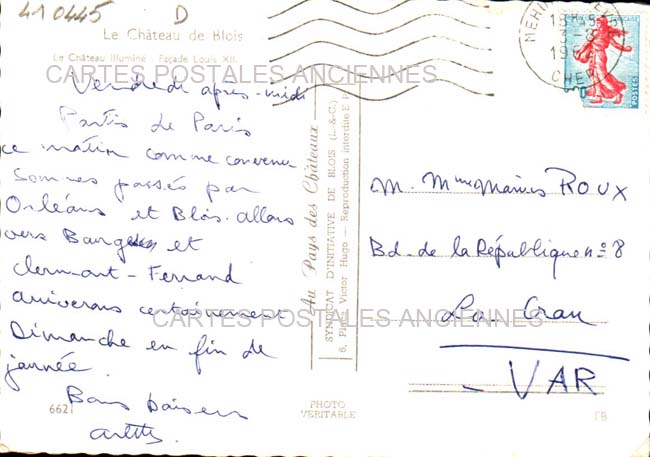 410445 D
Le Château de Blois
Le Château illuminé - Façade Louis XII
CARTES POSTALES ANCIENNES
Vendredi après-midi
Partis de Paris
ce matin comme convenu
Sommes passés par
Orléans et Blois. allons
vers Bourges et
Clermont-Ferrand
arriverons certainement
Dimanche en fin de
journée.
Bons baisers
6621
Au Pays des Châteaux
SYNDICAT D'INITIATIVE DE BLOIS (L.-&-C.)
6, Place Victor Hugo — Reproduction interdite
PHOTO
VERITABLE
CHER
POSTES
M. Mme Marius ROUX
Bd. de la République n° 8
La Crau
VAR
CARTES POSTALES ANCIENNES